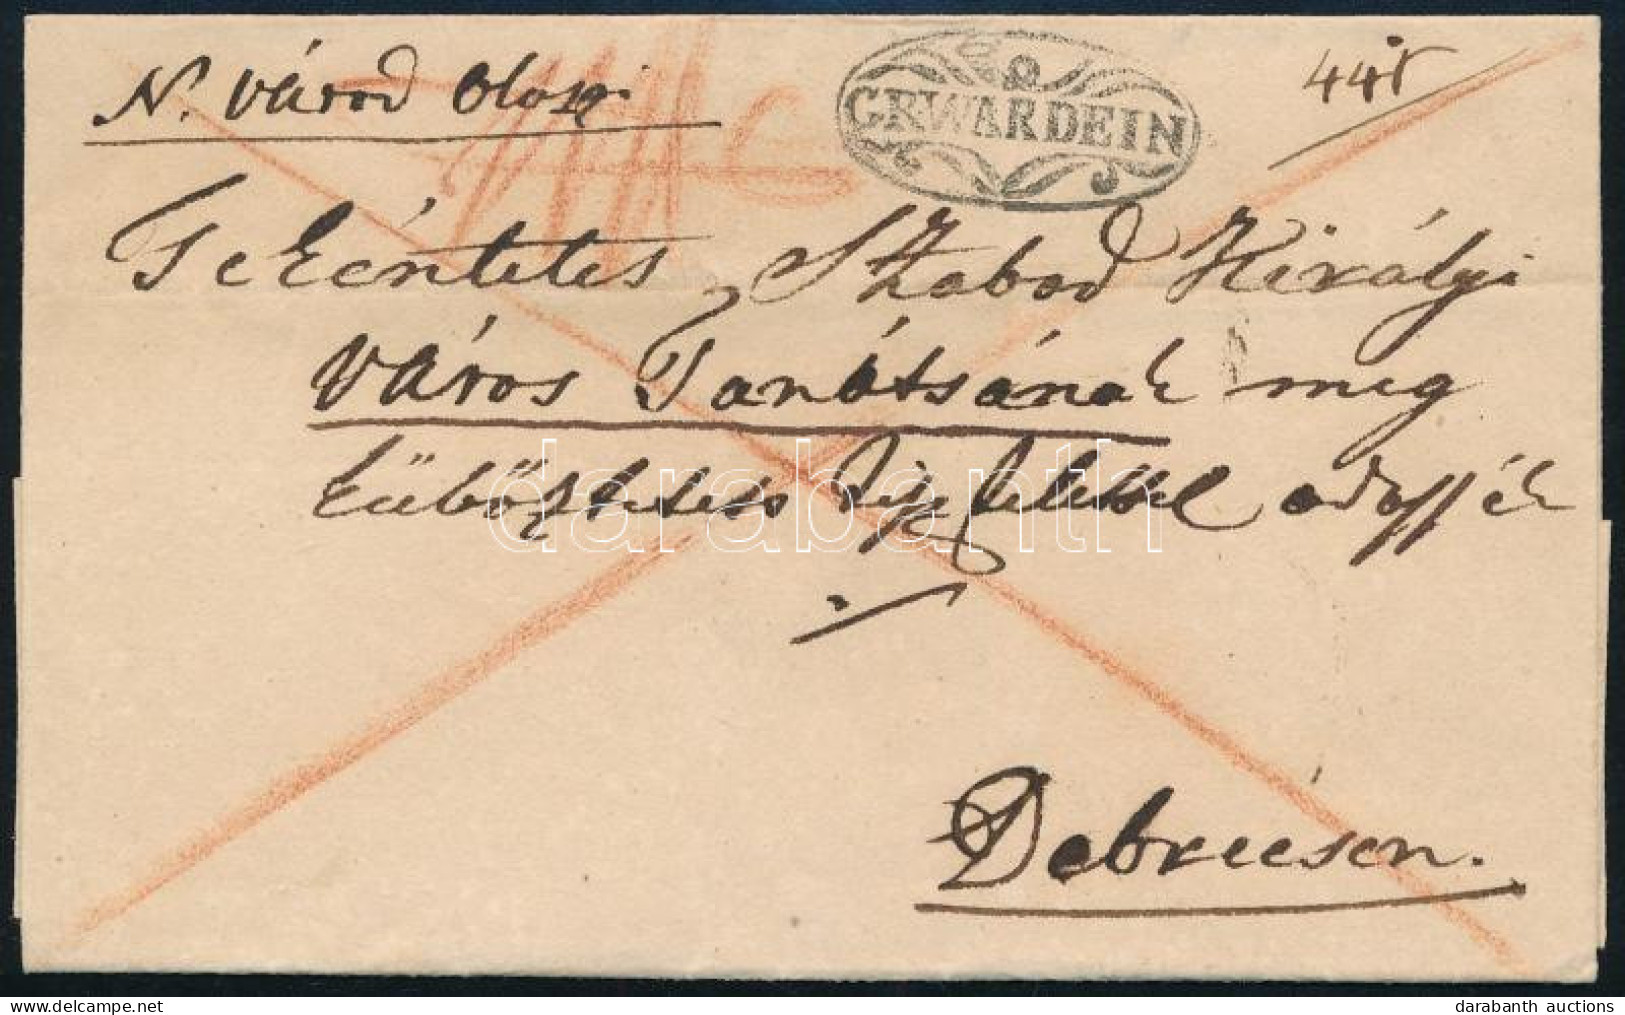 N. várad Olaszi
GRWARDEIN
44r
Tekéntetes Szabad Királyi
város Tanátsának meg
külömböztetett tisztelettel adassék
Debreésen.
darabanth
darabanth auctions